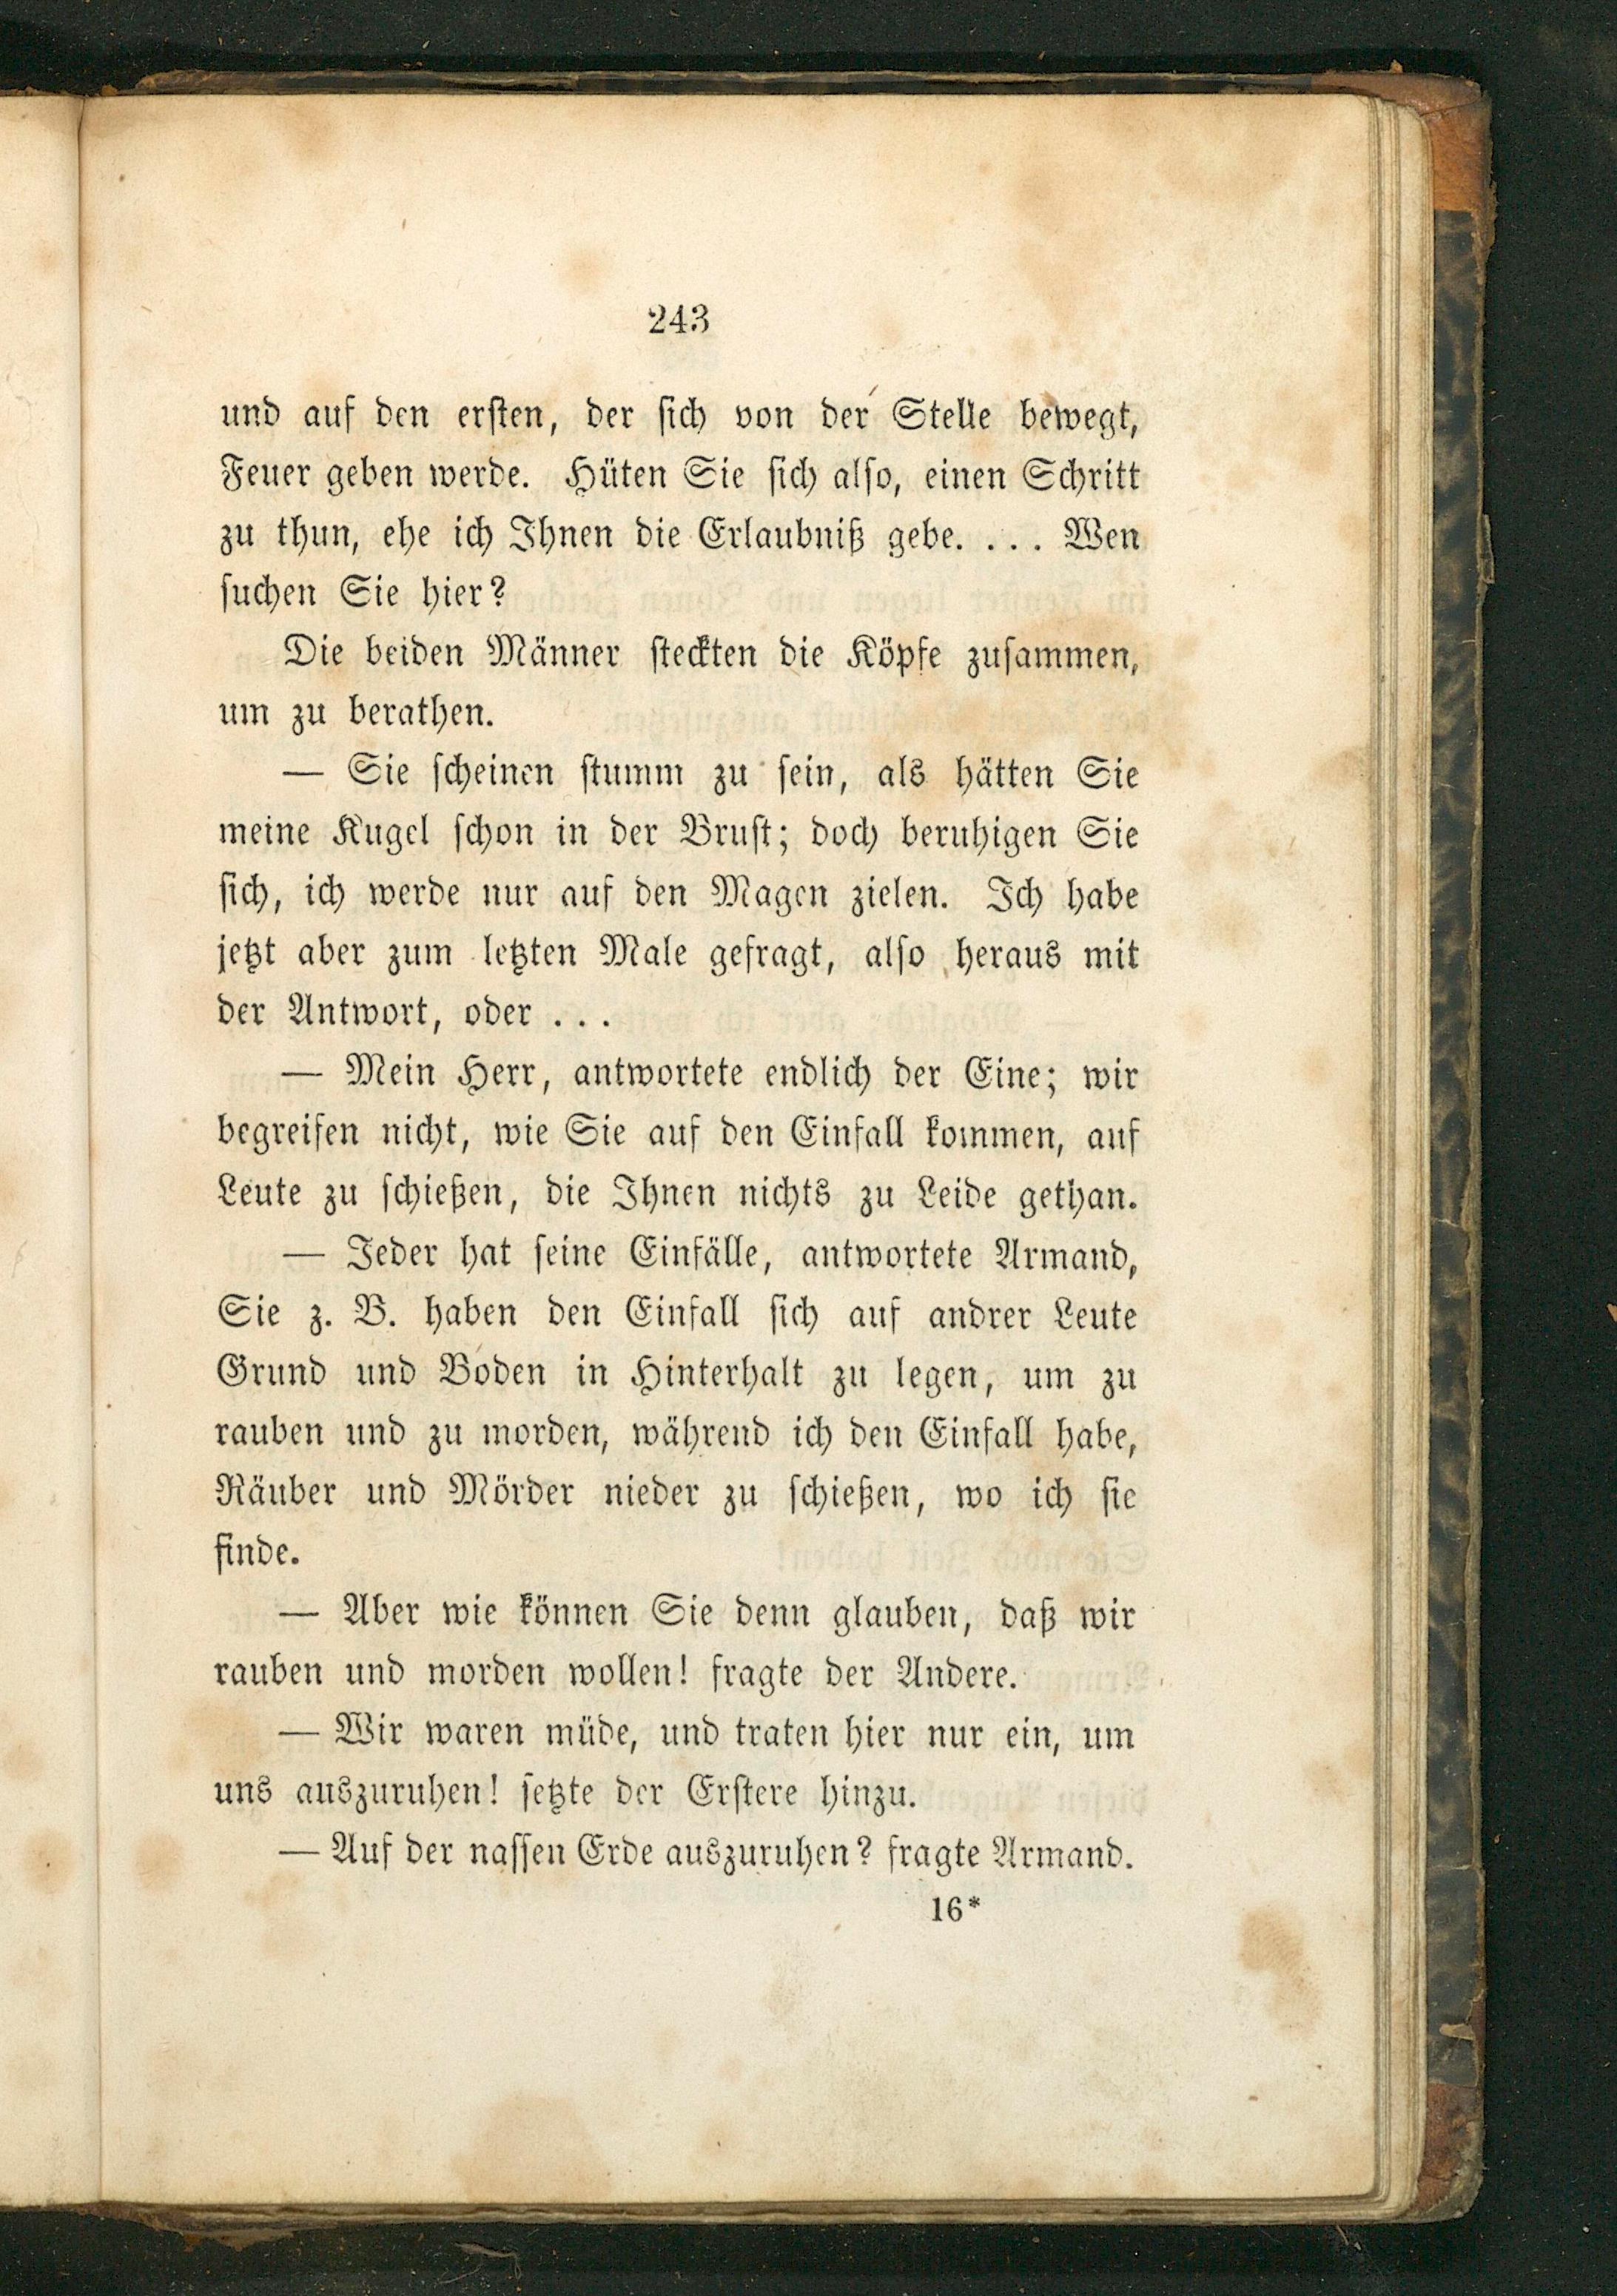 243
und auf den ersten, der sich von der Stelle bewegt,
Feuer geben werde. Hüten Sie sich also, einen Schritt
zu thun, ehe ich Ihnen die Erlaubniß gebe. . . . Wen
suchen Sie hier?
Die beiden Männer steckten die Köpfe zusammen,
um zu berathen.
— Sie scheinen stumm zu sein, als hätten Sie
meine Kugel schon in der Brust; doch beruhigen Sie
sich, ich werde nur auf den Magen zielen. Ich habe
jetzt aber zum letzten Male gefragt, also heraus mit
der Antwort, oder . . .
— Mein Herr, antwortete endlich der Eine; wir
begreifen nicht, wie Sie auf den Einfall kommen, auf
Leute zu schießen, die Ihnen nichts zu Leide gethan.
— Jeder hat seine Einfälle, antwortete Armand,
Sie z. B. haben den Einfall sich auf andrer Leute
Grund und Boden in Hinterhalt zu legen, um zu
rauben und zu morden, während ich den Einfall habe,
Räuber und Mörder nieder zu schießen, wo ich sie
finde.
— Aber wie können Sie denn glauben, daß wir
rauben und morden wollen! fragte der Andere.
— Wir waren müde, und traten hier nur ein, um
uns auszuruhen! setzte der Erstere hinzu.
— Auf der nassen Erde auszuruhen? fragte Armand.
16*